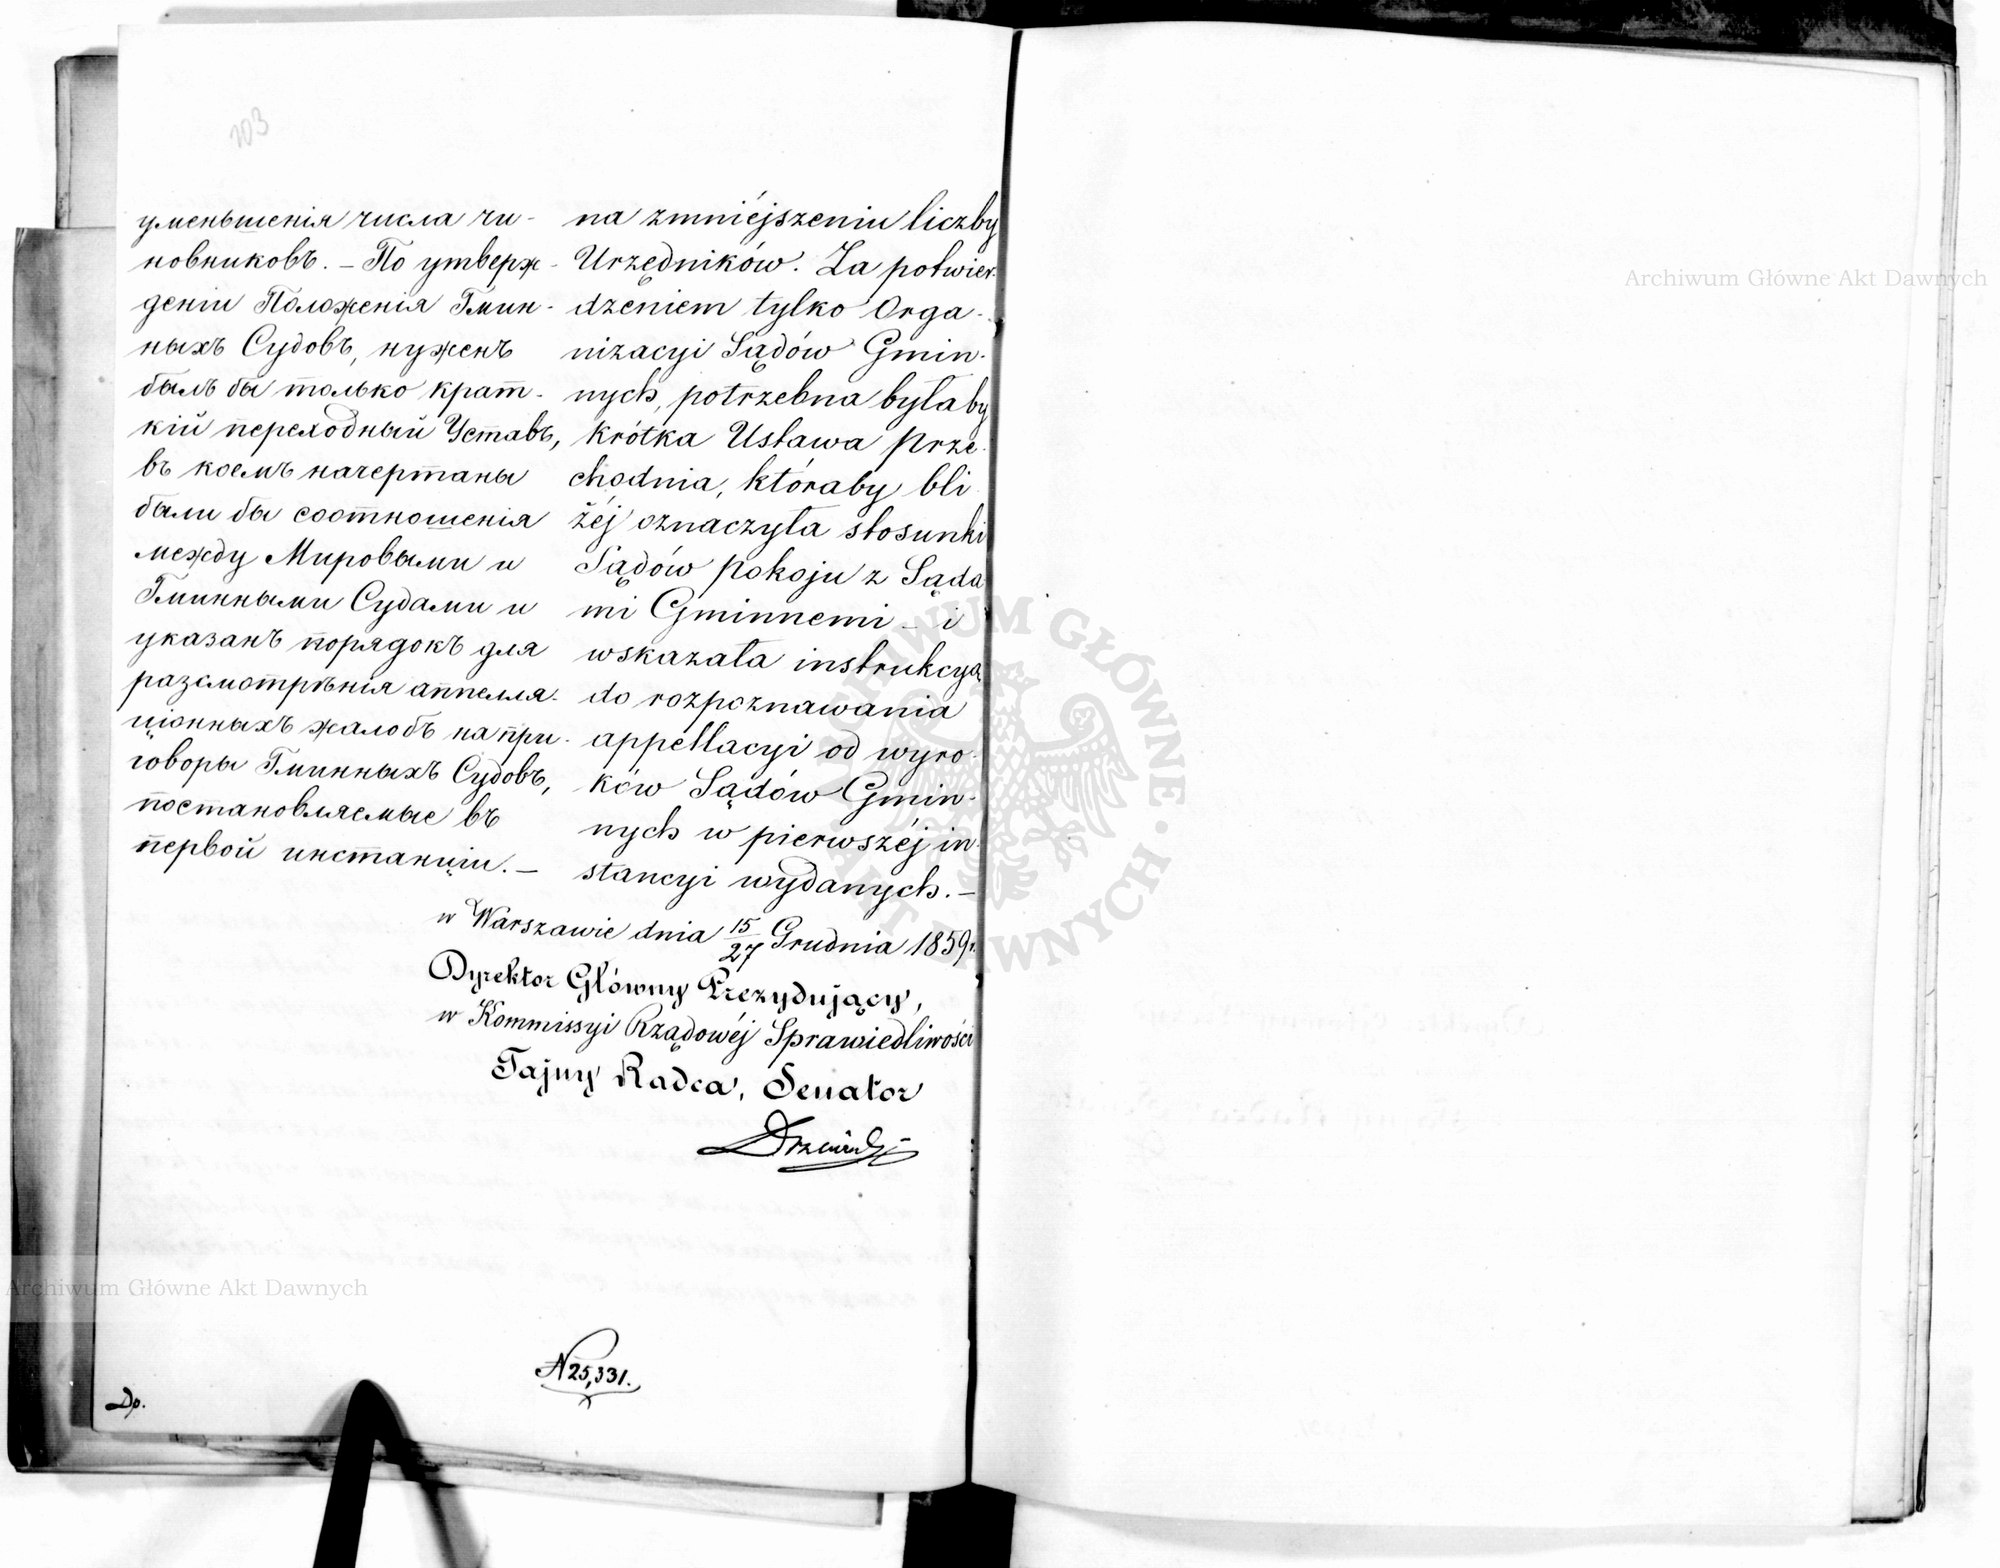 103
уменьшенія числа чи-
новниковъ. – По утверж-
деніи Положенія Гмин-
ныхъ Судовъ, нуженъ
былъ бы только крат-
кій переходный Уставъ,
въ коемъ начертаны
были бы соотношенія
между Мировыми и
Гминными Судами и
указанъ порядокъ для
разсмотрѣнія аппелля-
ціонныхъ жалобъ на при-
говоры Гминныхъ Судовъ,
постановляемые въ
первой инстанціи. –
na zmniéjszeniu liczby
Urzędników. Za potwier-
dzeniem tylko Orga-
nizacyi Sądów Gmin-
nych, potrzebna byłaby
krótka Ustawa prze-
chodnia, któraby bli
żéj oznaczyła stosunki
Sądów pokoju z Sąda
mi Gminnemi – i
wskazała instrukcyą
do rozpoznawania
appellacyi od wyro-
ków Sądów Gmin-
nych w pierwszéj in-
stancyi wydanych. –
w Warszawie dnia 15/27 Grudnia 1859 r.
Dyrektor Główny Prezydujący,
w Kommissyi Rządowéj Sprawiedliwości
Tajny Radca, Senator
N 25,331.
Dp.
Archiwum Główne Akt Dawnych
Archiwum Główne Akt Dawnych
ARCHIWUM GŁÓWNE · AKT DAWNYCH ·